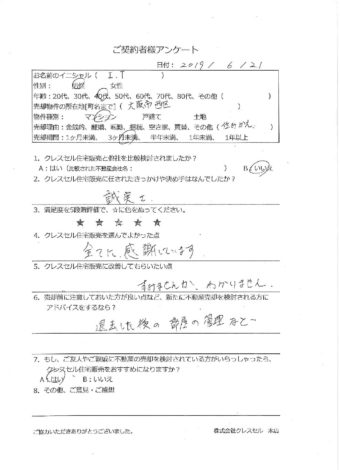 ご契約者様アンケート
日付: 2019 / 6 / 21
お名前のイニシャル ( I.T )
性別: 男性 女性
年齢: 20代、30代、40代、50代、60代、70代、80代、その他 ( )
売却物件の所在地(町名まで) ( 大阪市西区 )
物件種別: マンション 戸建て 土地
売却理由: 金銭的、離婚、転勤、相続、空き家、買替、その他 ( 住みかえ )
売却期間: 1ヶ月未満、3ヶ月未満、半年未満、1年未満、1年以上
1. クレスセル住宅販売と他社を比較検討されましたか?
A:はい (比較された不動産会社名: ) B:いいえ
2. クレスセル住宅販売に任されたきっかけや決め手はなんでしたか?
誠実さ
3. 満足度を5段階評価で、☆に色をぬってください。
★ ★ ★ ★ ★
4. クレスセル住宅販売を選んでよかった点
全てに感謝しています
5. クレスセル住宅販売に改善してもらいたい点
すみませんが、わかりません。
6. 売却前に注意しておいた方が良い点など、新たに不動産売却を検討される方に
アドバイスをするなら?
退去した後の部屋の管理など
7. もし、ご友人やご親戚に不動産の売却を検討されている方がいらっしゃったら、
クレスセル住宅販売をおすすめになりますか?
A:はい B:いいえ
8. その他、ご意見・ご感想
ご協力いただきありがとうございました。
株式会社クレスセル 本山